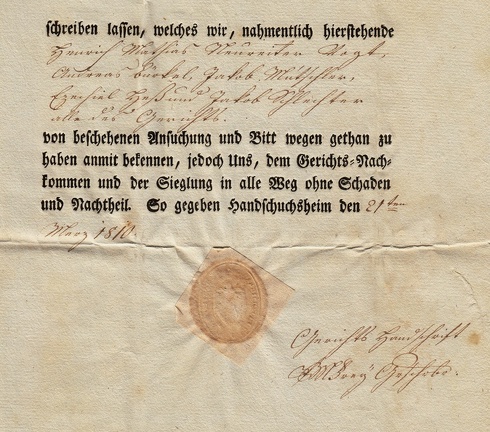 schreiben lassen, welches wir, nahmentlich hierstehende
Henrich Mathias Neureiter Vogt,
Andreas Burkel, Jakob Mutschler,
Ezechiel Heß und Jakob Schlechter
alle des Gerichts.
von beschehenen Ansuchung und Bitt wegen gethan zu
haben anmit bekennen, jedoch Uns, dem Gerichts-Nach-
kommen und der Sieglung in alle Weg ohne Schaden
und Nachtheil. So gegeben Handschuchsheim den 21ten
Merz 1810.
Gerichts Handschrift